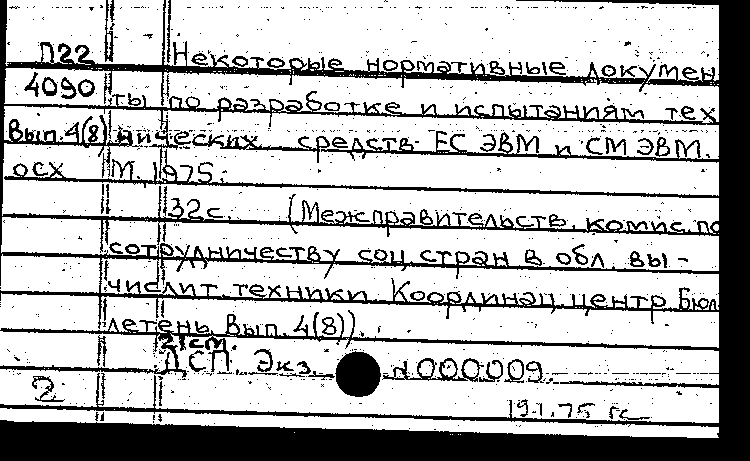 П22 Некоторые нормативные докумен
4090 ты по разработке и испытаниям тех
Вып.4(8) нических средств ЕС ЭВМ и СМ ЭВМ.
осх М. 1975.
32с. (Межправительств. комис. по
сотрудничеству соц. стран в обл. вы-
числит. техники. Координац. центр. Бюл
летень. Вып. 4(8)).
21см.
ДСП. Экз. N000009.
2
19.1.75 гс